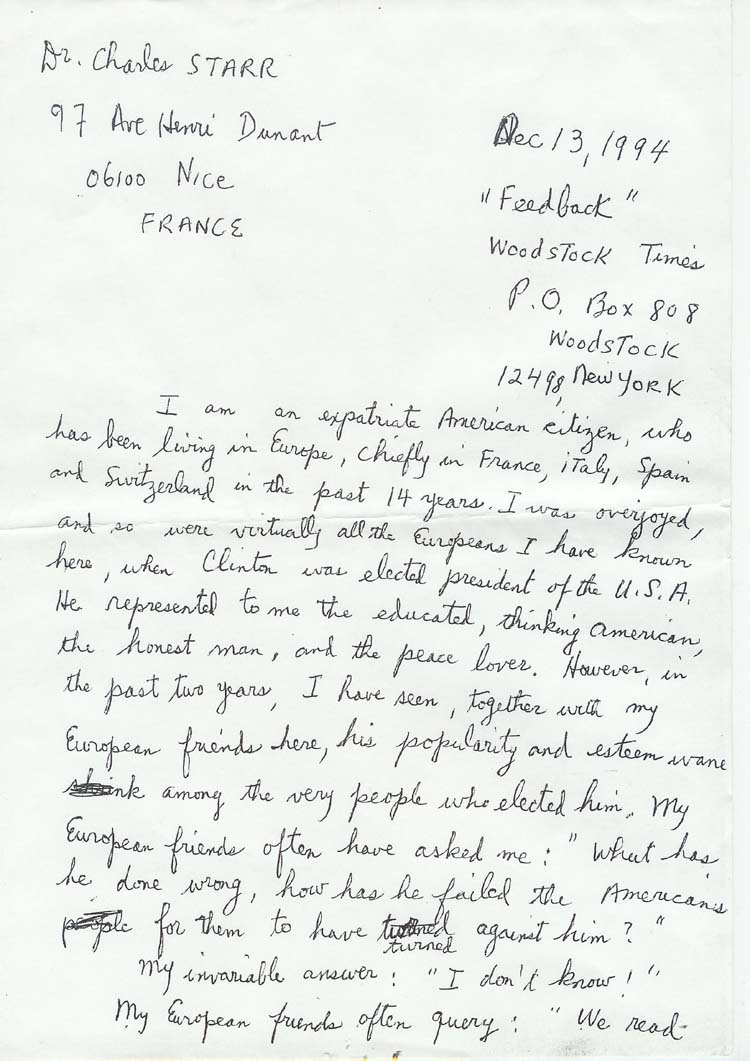 Dr. Charles STARR
97 Ave Henri Dunant
06100 Nice
FRANCE
Dec 13, 1994
"Feedback"
Woodstock Times
P.O. Box 808
Woodstock
12498, New York
I am an expatriate American citizen, who
has been living in Europe, chiefly in France, iTaly, Spain
and Switzerland in the past 14 years. I was overjoyed,
and so were virtually all the Europeans I have known
here, when Clinton was elected president of the U.S.A.
He represented to me the educated, thinking American,
the honest man, and the peace lover. However, in
the past two years, I have seen, together with my
European friends here, his popularity and esteem wane
among the very people who elected him. My
European friends often have asked me: "What has
he done wrong, how has he failed the Americans
people for them to have turned turned against him?"
My invariable answer: "I don't know!"
My European friends often query: "We read